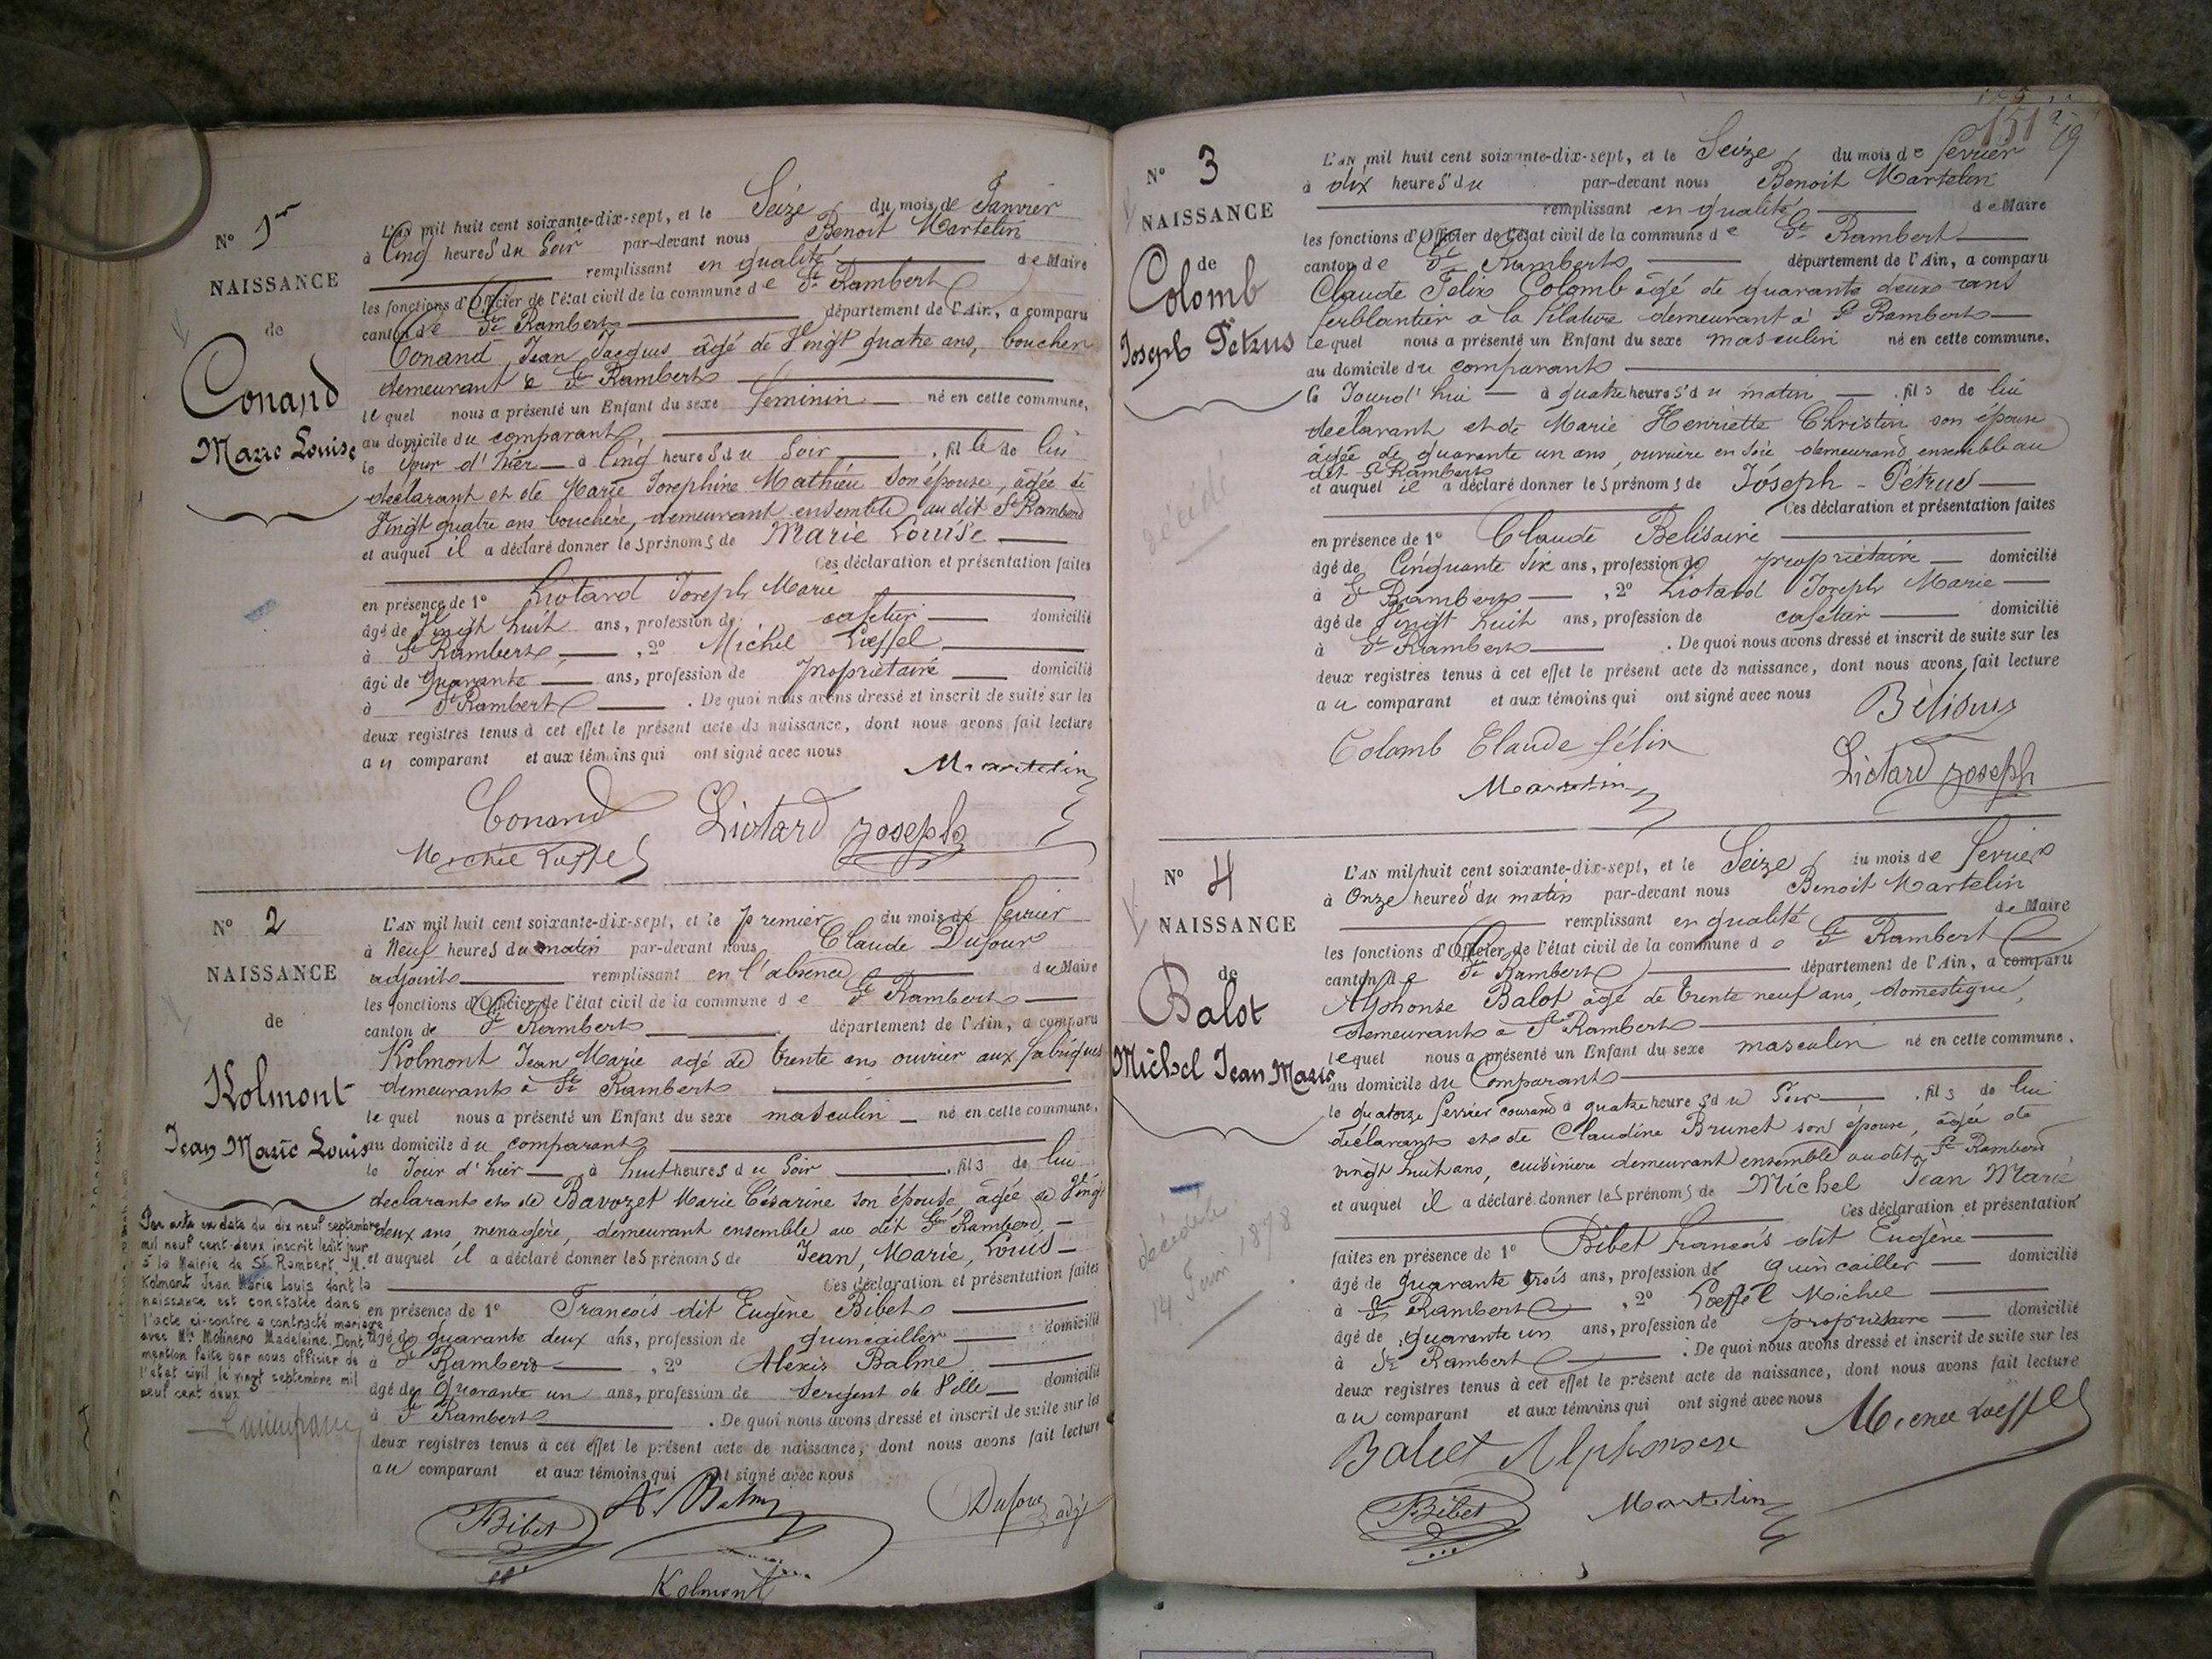 N° 1er
NAISSANCE
de
Conand
Marie Louise
L'AN mil huit cent soixante-dix-sept, et le Seize du mois de Janvier
à Cinq heures du Soir par-devant nous Benoit Martelin
remplissant en qualité de Maire
les fonctions d'Officier de l'état civil de la commune de St Rambert
canton de St Rambert département de l'Ain, a comparu
Conand Jean Jacques âgé de Vingt quatre ans, boucher
demeurant à St Rambert
lequel nous a présenté un Enfant du sexe féminin né en cette commune,
au domicile du comparant
le Jour d'hier à Cinq heures du Soir, fille de lui
déclarant et de Marie Josephine Mathieu Son épouse, âgée de
Vingt quatre ans bouchère, demeurant ensemble au dit St Rambert
et auquel il a déclaré donner les prénoms de Marie Louise
Ces déclaration et présentation faites
en présence de 1° Liotard Joseph Marie
âgé de Vingt huit ans, profession de cafetier domicilié
à St Rambert, 2° Michel Loeffel
âgé de Quarante ans, profession de propriétaire domicilié
à St Rambert. De quoi nous avons dressé et inscrit de suite sur les
deux registres tenus à cet effet le présent acte de naissance, dont nous avons fait lecture
au comparant et aux témoins qui ont signé avec nous
Martelin
Conand Liotard joseph
Michel Loeffel
N° 2
NAISSANCE
de
Kolmont
Jean Marie Louis
L'AN mil huit cent soixante-dix-sept, et le premier du mois de fevrier
à Neuf heures du matin par-devant nous Claude Dufour
adjoint remplissant en l'absence du Maire
les fonctions d'Officier de l'état civil de la commune de St Rambert
canton de St Rambert département de l'Ain, a comparu
Kolmont Jean Marie agé de trente ans ouvrier aux fabriques
demeurant à St Rambert
lequel nous a présenté un Enfant du sexe masculin né en cette commune,
au domicile du comparant
le Jour d'hier à huit heures du Soir, fils de lui
declarant et de Bavozet Marie Césarine son épouse, âgée de Vingt
deux ans, menagère, demeurant ensemble au dit St Rambert,
et auquel il a déclaré donner les prénoms de Jean, Marie, Louis
Ces déclaration et présentation faites
en présence de 1° Francois dit Eugène Bibet
âgé de quarante deux ans, profession de quincailler domicilié
à St Rambert, 2° Alexis Balme
âgé de Quarante un ans, profession de Sergent de Ville domicilié
à St Rambert. De quoi nous avons dressé et inscrit de suite sur les
deux registres tenus à cet effet le présent acte de naissance, dont nous avons fait lecture
au comparant et aux témoins qui ont signé avec nous
Par acte en date du dix neuf septembre
mil neuf cent-deux inscrit ledit jour
à la Mairie de St Rambert, M.
Kolmont Jean Marie Louis dont la
naissance est constatée dans
l'acte ci-contre a contracté mariage
avec Mlle Molinero Madeleine. Dont
mention faite par nous officier de
l'état civil le vingt septembre mil
neuf cent deux
Bibet A. Balme Dufour adjt
Kolmont
151
N° 3
NAISSANCE
de
Colomb
Joseph Pétrus
décédé
L'AN mil huit cent soixante-dix-sept, et le Seize du mois de fevrier
à dix heures du par-devant nous Benoit Martelin
remplissant en qualité de Maire
les fonctions d'Officier de l'état civil de la commune de St Rambert
canton de St Rambert département de l'Ain, a comparu
Claude Felix Colomb âgé de quarante deux ans
ferblantier à la filature demeurant à St Rambert
lequel nous a présenté un Enfant du sexe masculin né en cette commune,
au domicile du comparant
le Jourd'hui à quatre heures du matin, fils de lui
declarant et de Marie Henriette Christin son épouse
agée de quarante un ans, ouvrière en Soie demeurant ensemble au
dit St Rambert
et auquel il a déclaré donner les prénoms de Joseph - Pétrus
Ces déclaration et présentation faites
en présence de 1° Claude Belisaire
âgé de Cinquante Six ans, profession de propriétaire domicilié
à St Rambert, 2° Liotard Joseph Marie
âgé de Vingt huit ans, profession de cafetier domicilié
à St Rambert. De quoi nous avons dressé et inscrit de suite sur les
deux registres tenus à cet effet le présent acte de naissance, dont nous avons fait lecture
au comparant et aux témoins qui ont signé avec nous
Colomb Claude félix
Martelin Liotard joseph
N° 4
NAISSANCE
de
Balot
Michel Jean Marie
décédé
14 Juin 1878
L'AN mil huit cent soixante-dix-sept, et le Seize du mois de fevrier
à Onze heures du matin par-devant nous Benoit Martelin
remplissant en qualité de Maire
les fonctions d'Officier de l'état civil de la commune de St Rambert
canton de St Rambert département de l'Ain, a comparu
Alphonse Balot âgé de trente neuf ans, domestique,
demeurant à St Rambert
lequel nous a présenté un Enfant du sexe masculin né en cette commune,
au domicile du Comparant
le quatorze fevrier courant à quatre heures du Soir, fils de lui
déclarant et de Claudine Brunet son épouse, âgée de
vingt huit ans, cuisinière demeurant ensemble audit St Rambert
et auquel il a déclaré donner les prénoms de Michel Jean Marie
Ces déclaration et présentation
faites en présence de 1° Bibet francois dit Eugène
âgé de quarante trois ans, profession de quincailler domicilié
à St Rambert, 2° Loeffel Michel
âgé de quarante un ans, profession de propriétaire domicilié
à St Rambert. De quoi nous avons dressé et inscrit de suite sur les
deux registres tenus à cet effet le présent acte de naissance, dont nous avons fait lecture
au comparant et aux témoins qui ont signé avec nous
Balot Alphonse Michel Loeffel
Bibet Martelin